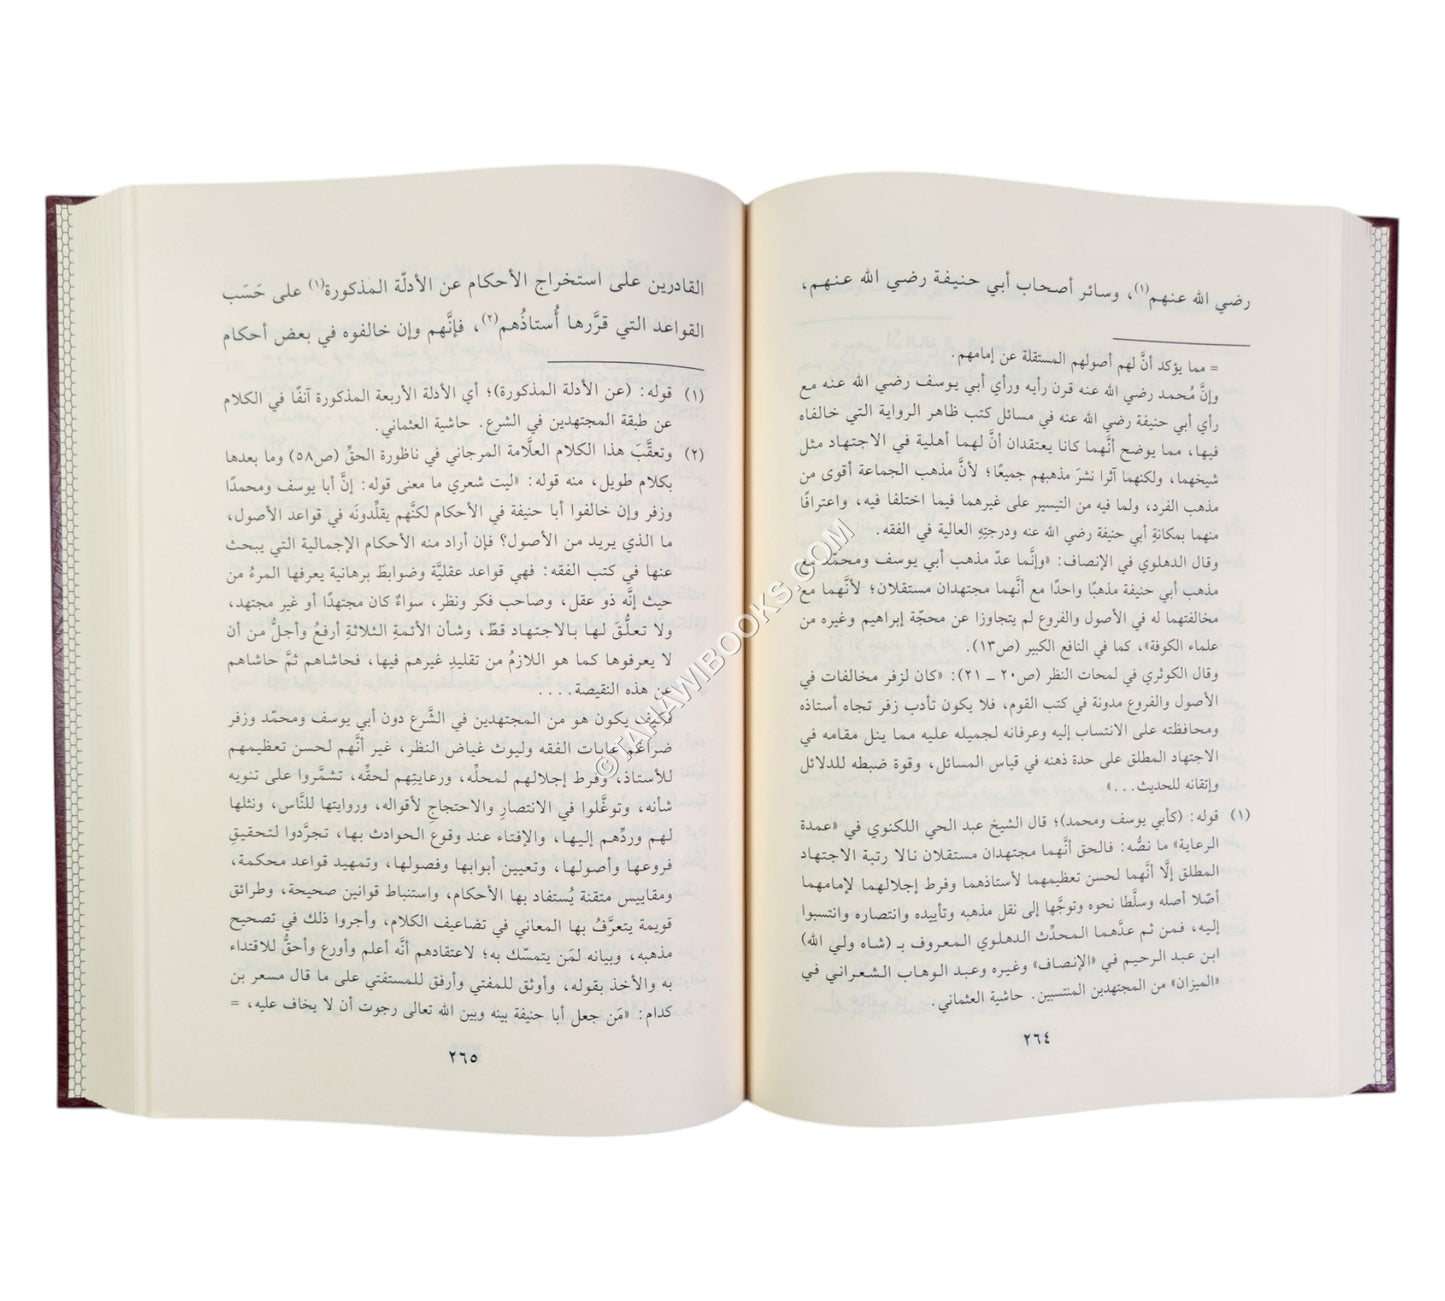 رضي الله عنهم(١)، وسائر أصحاب أبي حنيفة رضي الله عنهم،
= مما يؤكد أنَّ لهم أصولهم المستقلة عن إمامهم.
وإنَّ مُحمد رضي الله عنه قرن رأيه ورأي أبي يوسف رضي الله عنه مع
رأي أبي حنيفة رضي الله عنه في مسائل كتب ظاهر الرواية التي خالفاه
فيها، مما يوضح أنَّهما كانا يعتقدان أنَّ لهما أهلية في الاجتهاد مثل
شيخهما، ولكنهما آثرا نشرَ مذهبهم جميعًا؛ لأنَّ مذهب الجماعة أقوى من
مذهب الفرد، ولما فيه من التيسير على غيرهما فيما اختلفا فيه، واعترافًا
منهما بمكانةِ أبي حنيفة رضي الله عنه ودرجتِهِ العالية في الفقه.
وقال الدهلوي في الإنصاف: «وإنَّما عدّ مذهب أبي يوسف ومحمد مع
مذهب أبي حنيفة مذهبًا واحدًا مع أنَّهما مجتهدان مستقلان؛ لأنَّهما مع
مخالفتهما له في الأصول والفروع لم يتجاوزا عن محجّة إبراهيم وغيره من
علماء الكوفة»، كما في النافع الكبير (ص١٣).
وقال الكوثري في لمحات النظر (ص٢٠ ــ ٢١): «كان لزفر مخالفات في
الأصول والفروع مدونة في كتب القوم، فلا يكون تأدب زفر تجاه أستاذه
ومحافظته على الانتساب إليه وعرفانه لجميله عليه مما ينل مقامه في
الاجتهاد المطلق على حدة ذهنه في قياس المسائل، وقوة ضبطه للدلائل
وإتقانه للحديث...»
(١) قوله: (كأبي يوسف ومحمد)؛ قال الشيخ عبد الحي اللكنوي في «عمدة
الرعاية» ما نصُّه: فالحق أنَّهما مجتهدان مستقلان نالا رتبة الاجتهاد
المطلق إلَّا أنَّهما لحسن تعظيمهما لأستاذهما وفرط إجلالهما لإمامهما
أصّلا أصله وسلَّطا نحوه وتوجَّها إلى نقل مذهبه وتأييده وانتصاره وانتسبوا
إليه، فمن ثم عدَّهما المحدِّث الدهلوي المعروف بـ (شاه ولي الله)
ابن عبد الرحيم في «الإنصاف» وغيره وعبد الوهاب الشعراني في
«الميزان» من المجتهدين المنتسبين. حاشية العثماني.
٢٦٤
القادرين على استخراج الأحكام عن الأدلّة المذكورة(١) على حَسَب
القواعد التي قرَّرها أُستاذُهم(٢)، فإنَّهم وإن خالفوه في بعض أحكام
(١) قوله: (عن الأدلة المذكورة)؛ أي الأدلة الأربعة المذكورة آنفًا في الكلام
عن طبقة المجتهدين في الشرع. حاشية العثماني.
(٢) وتعقَّبَ هذا الكلام العلَّامة المرجاني في ناظورة الحقِّ (ص٥٨) وما بعدها
بكلام طويل، منه قوله: «ليت شعري ما معنى قوله: إنَّ أبا يوسف ومحمدًا
وزفر وإن خالفوا أبا حنيفة في الأحكام لكنَّهم يقلِّدونَه في قواعد الأصول،
ما الذي يريد من الأصول؟ فإن أراد منه الأحكام الإجمالية التي يبحث
عنها في كتب الفقه: فهي قواعد عقليَّة وضوابطَ برهانية يعرفها المرءُ من
حيث إنَّه ذو عقل، وصاحب فكر ونظر، سواءٌ كان مجتهدًا أو غير مجتهد،
ولا تعلُّقَ لها بالاجتهاد قطّ، وشأن الأئمةِ الثلاثةِ أرفعُ وأجلُّ من أن
لا يعرفوها كما هو اللازمُ من تقليدِ غيرهم فيها، فحاشاهم ثمَّ حاشاهم
عن هذه النقيصة....
فكيف يكون هو من المجتهدين في الشَّرع دون أبي يوسف ومحمّد وزفر
ضراغم غابات الفقه وليوث غياض النظر، غير أنَّهم لحسن تعظيمهم
للأستاذ، وفرط إجلالهم لمحلِّه، ورعايتِهم لحقِّه، تشمَّروا على تنويه
شأنه، وتوغَّلوا في الانتصارِ والاحتجاجِ لأقواله، وروايتها للنَّاس، ونثلها
لهم وردِّهم إليها، والإفتاء عند وقوعَ الحوادث بها، تجرَّدوا لتحقيقِ
فروعها وأصولها، وتعيين أبوابها وفصولها، وتمهيد قواعد محكمة،
ومقاييس متقنة يُستفاد بها الأحكام، واستنباط قوانين صحيحة، وطرائق
قويمة يتعرَّفُ بها المعاني في تضاعيف الكلام، وأجروا ذلك في تصحيح
مذهبه، وبيانه لمَن يتمسّك به؛ لاعتقادهم أنَّه أعلم وأورع وأحقُّ للاقتداء
به والأخذ بقوله، وأوثق للمفتي وأرفق للمستفتي على ما قال مسعر بن
كدام: «مَن جعل أبا حنيفة بينه وبين الله تعالى رجوت أن لا يخاف عليه، =
٢٦٥
© TAHAWIBOOKS.COM